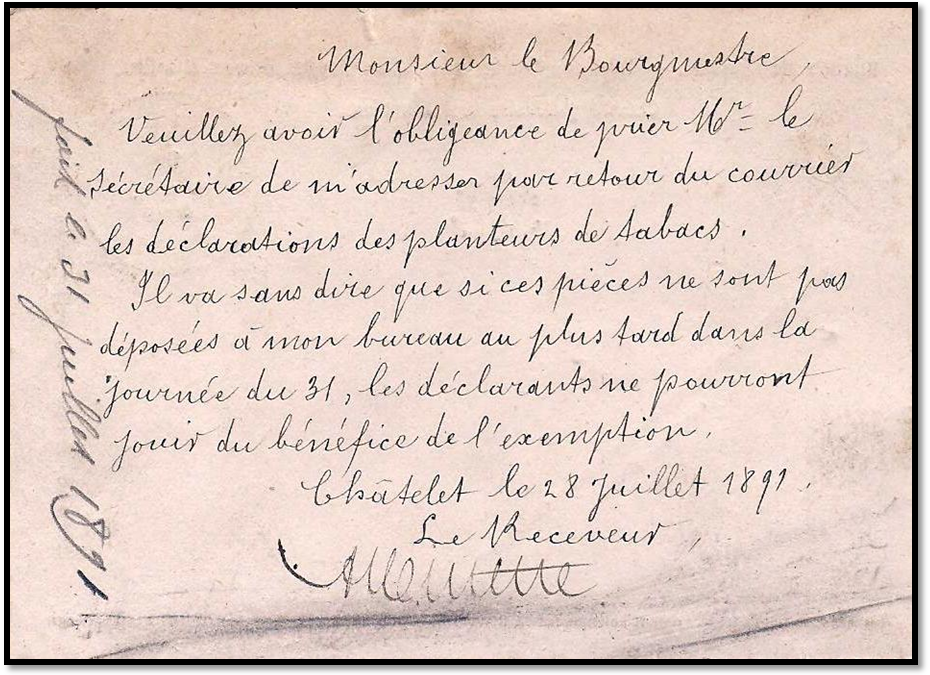 Monsieur le Bourgmestre,
Veuillez avoir l'obligeance de prier Mr le
sécrétaire de m'adresser par retour du courrier
les déclarations des planteurs de tabacs.
Il va sans dire que si ces pièces ne sont pas
déposées à mon bureau au plus tard dans la
journée du 31, les déclarants ne pourront
jouir du bénéfice de l'exemption.
Châtelet le 28 Juillet 1891.
Le Receveur,
fait le 31 Juillet 1891